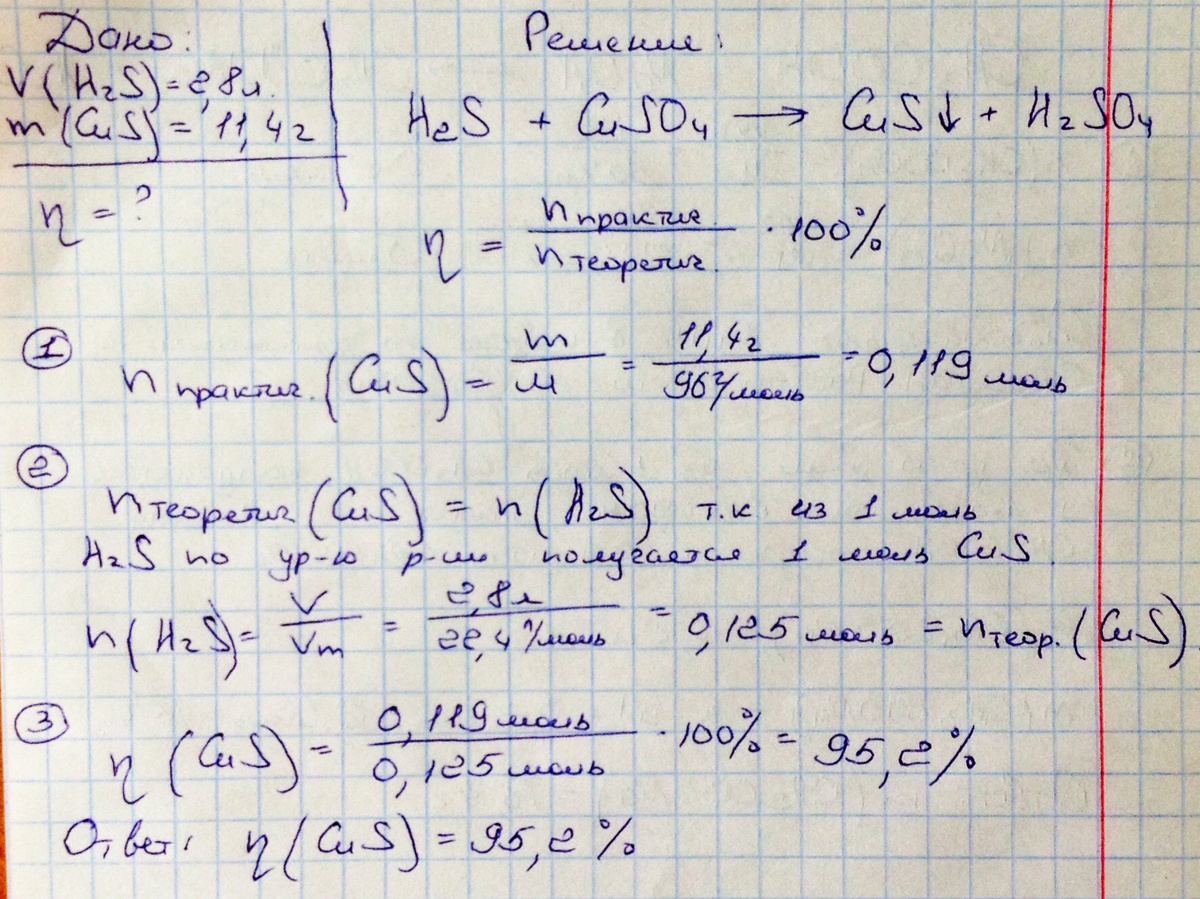 Дано:
V(H₂S)=2,8л.
m(CuS) = 11,4г
η = ?
Решение:
H₂S + CuSO₄ → CuS↓ + H₂SO₄
η = n практич. / n теоретич. · 100%
① n практич.(CuS) = m / M = 11,4г / 96г/моль = 0,119 моль
② n теоретич(CuS) = n(H₂S) т.к из 1 моль
H₂S по ур-ю р-ии получается 1 моль CuS.
n(H₂S)= V / Vm = 2,8л / 22,4л/моль = 0,125 моль = n теор.(CuS).
③ η(CuS) = 0,119 моль / 0,125 моль · 100% = 95,2%
Ответ: η(CuS) = 95,2%